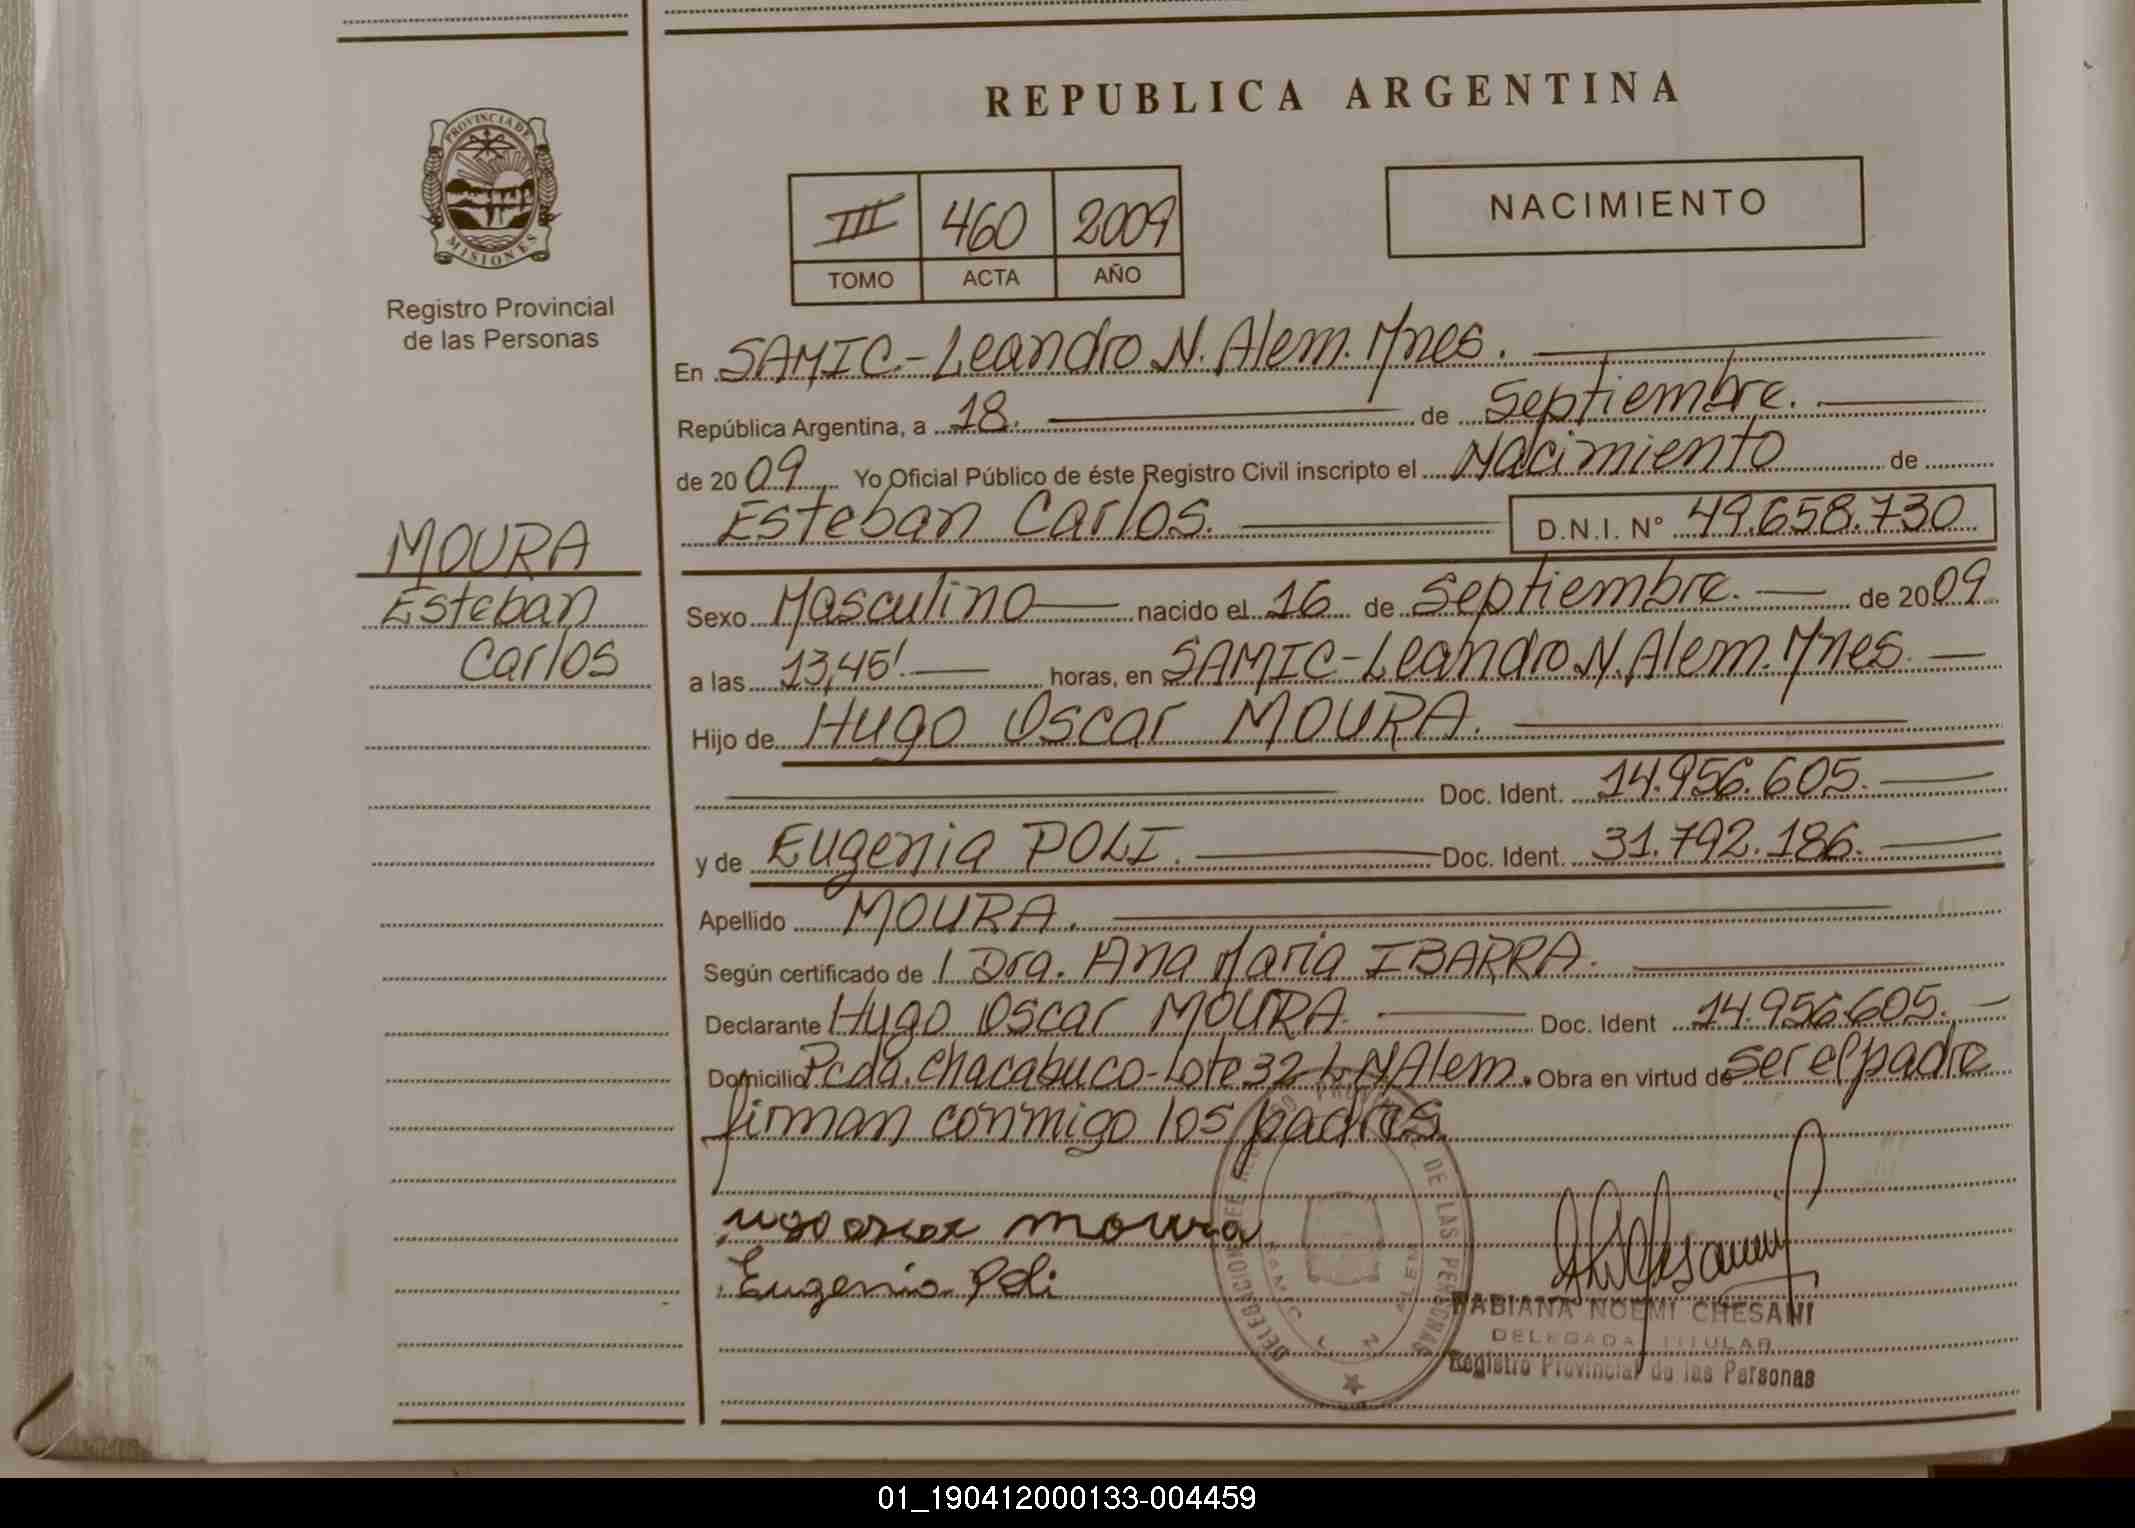 REPUBLICA ARGENTINA
PROVINCIA DE
MISIONES
Registro Provincial
de las Personas
III 460 2009
TOMO ACTA AÑO
NACIMIENTO
En SAMIC.- Leandro N. Alem. Mnes.
República Argentina, a 18. de Septiembre.
de 2009 Yo Oficial Público de éste Registro Civil inscripto el Nacimiento de
Esteban Carlos. D.N.I. Nº 49.658.730
MOURA
Esteban
Carlos
Sexo Masculino nacido el 16 de Septiembre. de 2009
a las 13,45'. horas, en SAMIC-Leandro N. Alem. Mnes.
Hijo de Hugo Oscar MOURA.
Doc. Ident. 14.956.605.
y de Eugenia POLI. Doc. Ident. 31.792.186.
Apellido MOURA.
Según certificado de l Dra. Ana Maria IBARRA.
Declarante Hugo Oscar MOURA. Doc. Ident 14.956.605.
Domicilio Pcda. Chacabuco-Lote 32 L N Alem. Obra en virtud de ser el padre
firman conmigo los padres
ugo oscar moura
Eugenia Poli
DELEGACION DEL REGISTRO PROVINCIAL DE LAS PERSONAS
SAMIC L. N. ALEM
FABIANA NOEMI CHESANI
DELEGADA TITULAR
Registro Provincial de las Personas
01_190412000133-004459